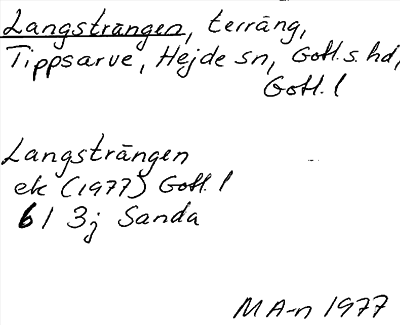 Langsträngen, terräng,
Tippsarve, Hejde sn, Gotl. s. hd,
Gotl. l
Langsträngen
ek (1977) Gotl. l
6 I 3j Sanda
M A-n 1977